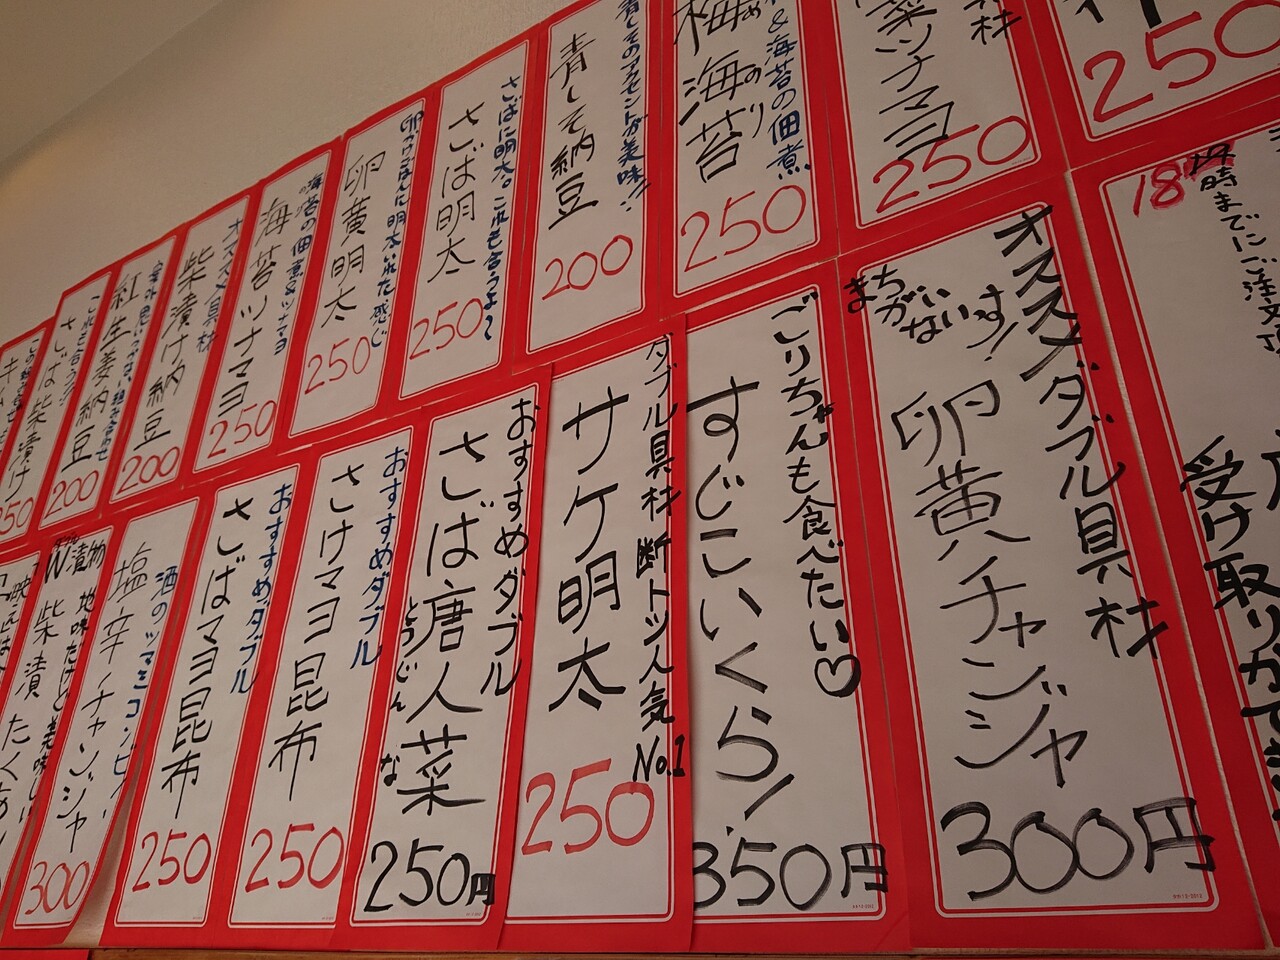 250
材
菜ツナマヨ
250
&海苔の佃煮
梅海苔
めのり
250
青しそのアクセントが美味!!
青しそ納豆
200
さばに明太。これも合うよ〜
さば明太
250
卵かけごはんに明太いれた感じ
卵黄明太
250
海苔の佃煮&ツナマヨ
海苔ツナマヨ
250
オススメ具材
柴漬け納豆
200
紅生姜納豆
200
さば柴漬け
250
18時までにご注文頂
受け取りかで
オススメダブル具材
まちがいないっす!
卵黄チャンジャ
300円
ごりちゃんも食べたい♡
すじこいくら!
350円
ダブル具材 断トツ人気No.1
サケ明太
250
おすすめダブル
さば唐人菜
とうじんな
250円
おすすめダブル
さけマヨ昆布
250
おすすめダブル
さばマヨ昆布
250
酒のツマミコンビ
塩辛チャンジャ
300
W漬物 地味だけど美味しい
柴漬たくあん